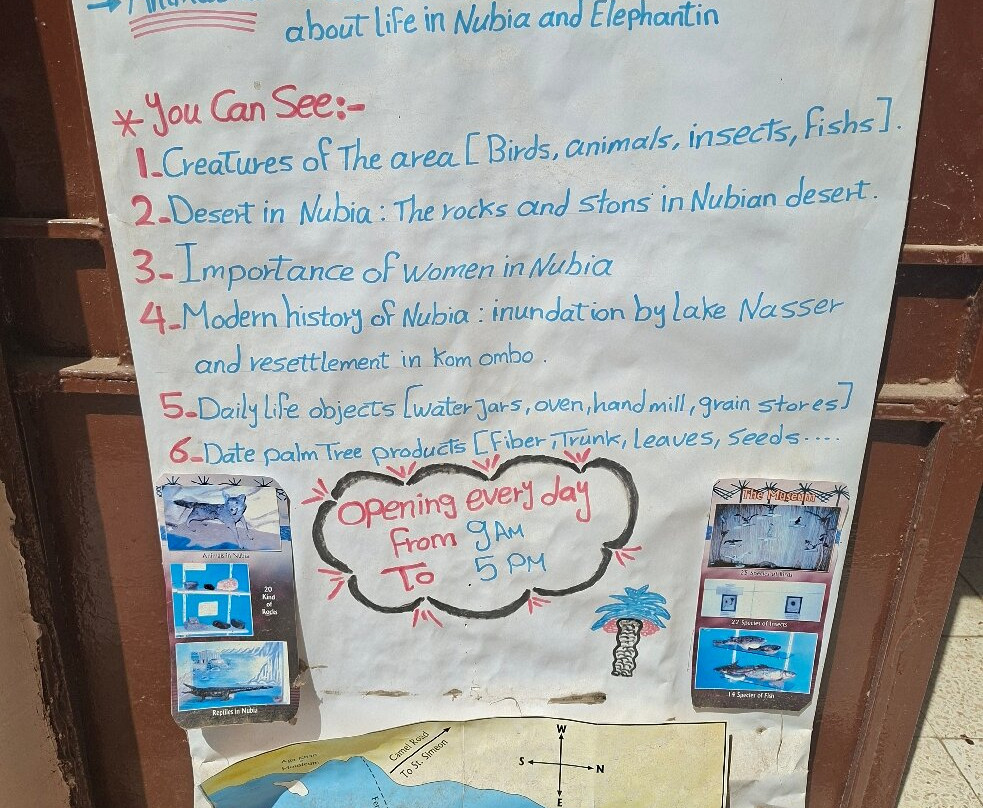 about life in Nubia and Elephantin
* You Can See:-
1-Creatures of The area [Birds, animals, insects, fishs].
2-Desert in Nubia : The rocks and stons in Nubian desert.
3-Importance of women in Nubia
4-Modern history of Nubia : inundation by lake Nasser
and resettlement in Kom ombo.
5-Daily life objects [water Jars, oven, hand mill, grain stores]
6-Date palm Tree products [Fiber, Trunk, leaves, seeds....
opening every day
from 9 AM
To 5 PM
Animals in Nubia
20
Kind
of
Rocks
Reptiles in Nubia
The Museum
Species of Birds
22 Species of Insects
14 Species of Fish
Camel Road
To St. Simeon
W
S
N
E